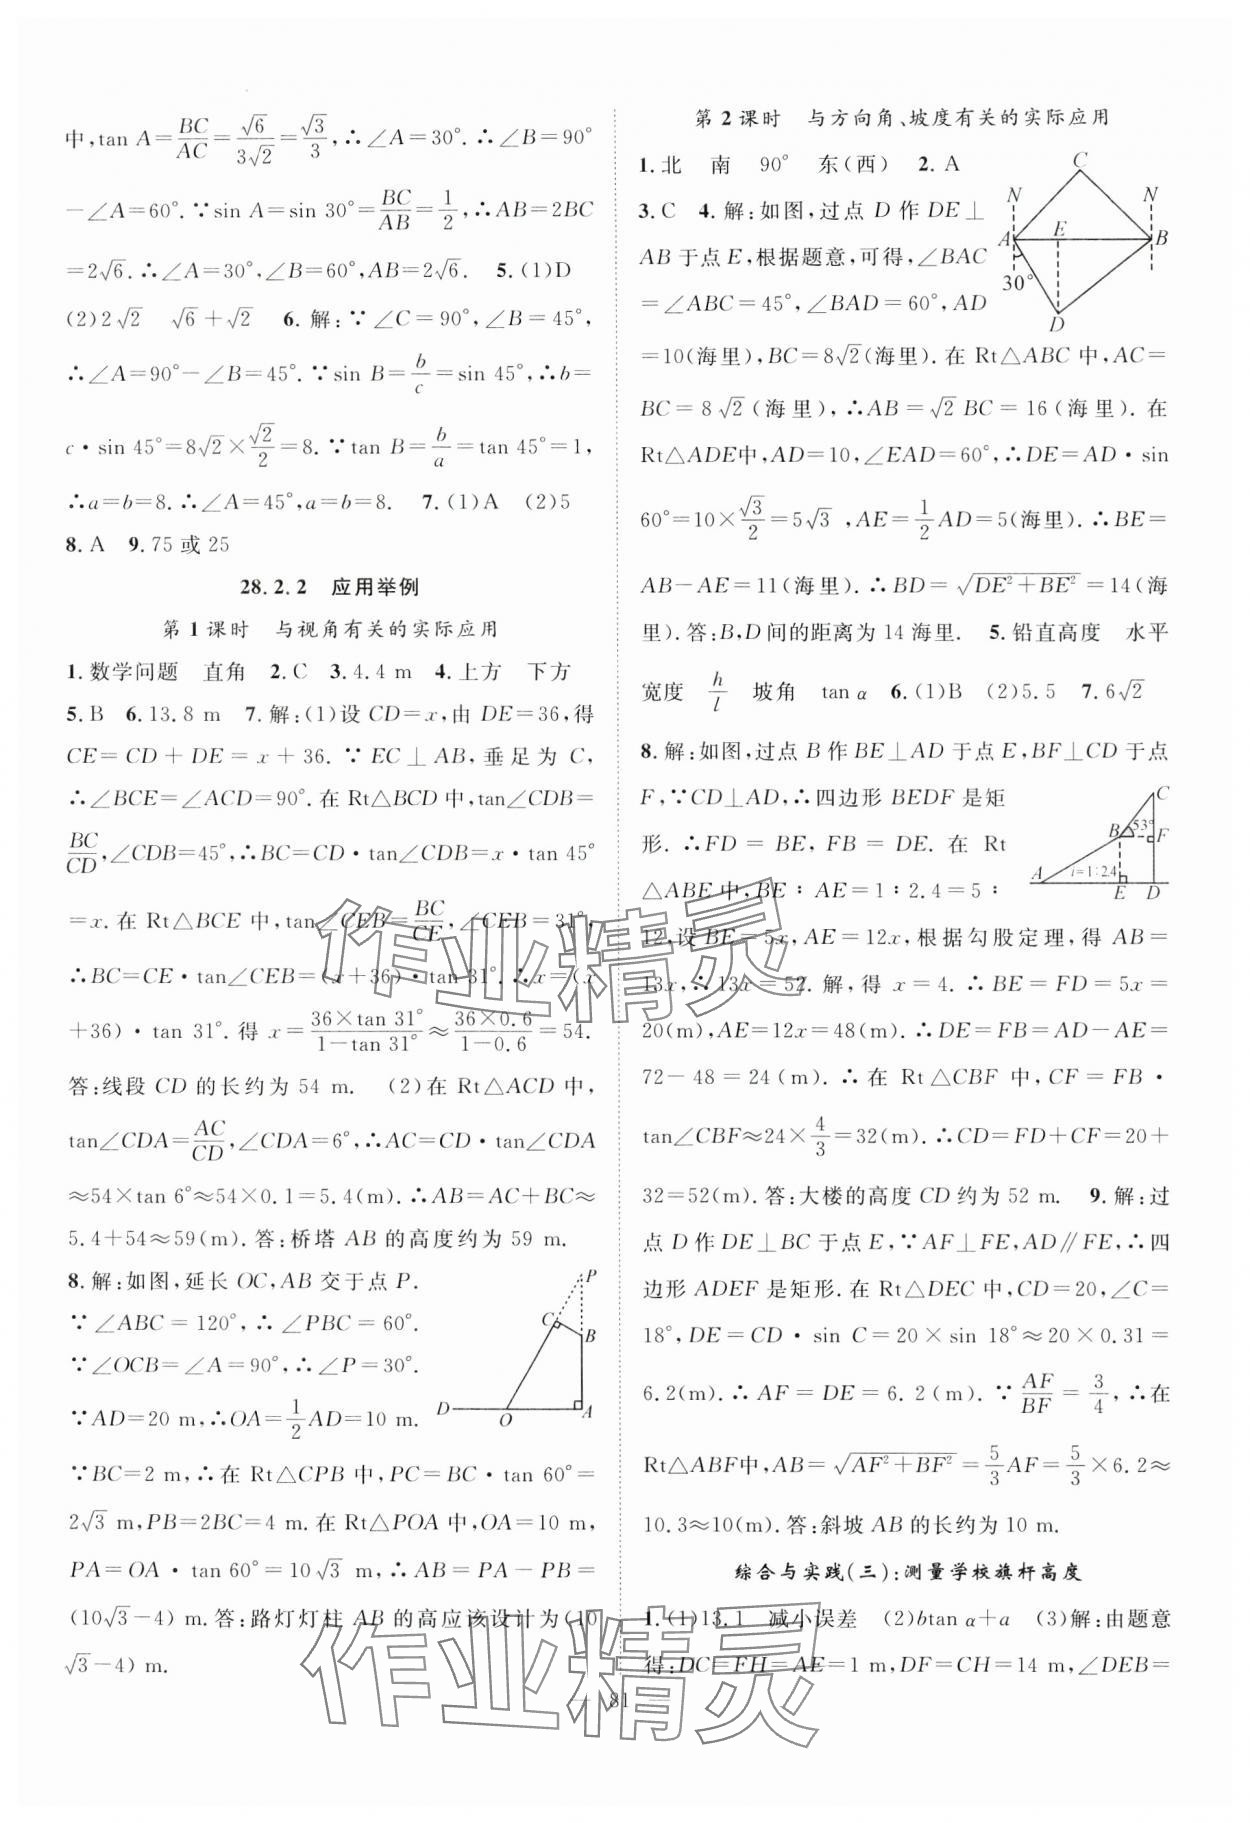 中,tan A=BC/AC=√6/3√2=√3/3,∴∠A=30°.∴∠B=90°
-∠A=60°.∵sin A=sin 30°=BC/AB=1/2,∴AB=2BC
=2√6.∴∠A=30°,∠B=60°,AB=2√6. 5.(1)D
(2)2√2 √6+√2 6.解:∵∠C=90°,∠B=45°,
∴∠A=90°-∠B=45°.∵sin B=b/c=sin 45°,∴b=
c·sin 45°=8√2×√2/2=8.∵tan B=b/a=tan 45°=1,
∴a=b=8.∴∠A=45°,a=b=8. 7.(1)A (2)5
8.A 9.75或25
28.2.2 应用举例
第1课时 与视角有关的实际应用
1.数学问题 直角 2.C 3.4.4 m 4.上方 下方
5.B 6.13.8 m 7.解:(1)设CD=x,由DE=36,得
CE=CD+DE=x+36.∵EC⊥AB,垂足为C,
∴∠BCE=∠ACD=90°.在Rt△BCD中,tan∠CDB=
BC/CD,∠CDB=45°,∴BC=CD·tan∠CDB=x·tan 45°
=x.在Rt△BCE中,tan∠CEB=BC/CE,∠CEB=31°,
∴BC=CE·tan∠CEB=(x+36)·tan 31°.∴x=(x
+36)·tan 31°.得x=36×tan 31°/1-tan 31°≈36×0.6/1-0.6=54.
答:线段CD的长约为54 m. (2)在Rt△ACD中,
tan∠CDA=AC/CD,∠CDA=6°,∴AC=CD·tan∠CDA
≈54×tan 6°≈54×0.1=5.4(m).∴AB=AC+BC≈
5.4+54≈59(m).答:桥塔AB的高度约为59 m.
8.解:如图,延长OC,AB交于点P.
∵∠ABC=120°,∴∠PBC=60°.
∵∠OCB=∠A=90°,∴∠P=30°.
∵AD=20 m,∴OA=1/2AD=10 m.
P
C
B
D
O
A
∵BC=2 m,∴在Rt△CPB中,PC=BC·tan 60°=
2√3 m,PB=2BC=4 m.在Rt△POA中,OA=10 m,
PA=OA·tan 60°=10√3 m,∴AB=PA-PB=
(10√3-4) m.答:路灯灯柱AB的高应该设计为(10
√3-4) m.
第2课时 与方向角、坡度有关的实际应用
1.北 南 90° 东(西) 2.A
3.C 4.解:如图,过点D作DE⊥
AB于点E,根据题意,可得,∠BAC
=∠ABC=45°,∠BAD=60°,AD
C
N
N
E
A
B
30°
D
=10(海里),BC=8√2(海里).在Rt△ABC中,AC=
BC=8√2(海里),∴AB=√2BC=16(海里).在
Rt△ADE中,AD=10,∠EAD=60°,∴DE=AD·sin
60°=10×√3/2=5√3,AE=1/2AD=5(海里).∴BE=
AB-AE=11(海里).∴BD=√DE²+BE²=14(海
里).答:B,D间的距离为14海里. 5.铅直高度 水平
宽度 h/l 坡角 tan α 6.(1)B (2)5.5 7.6√2
8.解:如图,过点B作BE⊥AD于点E,BF⊥CD于点
F,∵CD⊥AD,∴四边形BEDF是矩
形.∴FD=BE,FB=DE.在Rt
△ABE中,BE∶AE=1∶2.4=5∶
C
B
53°
F
A
i=1:2.4
E
D
12,设BE=5x,AE=12x,根据勾股定理,得AB=
13x,∴13x=52.解,得x=4.∴BE=FD=5x=
20(m),AE=12x=48(m).∴DE=FB=AD-AE=
72-48=24(m).∴在Rt△CBF中,CF=FB·
tan∠CBF≈24×4/3=32(m).∴CD=FD+CF=20+
32=52(m).答:大楼的高度CD约为52 m. 9.解:过
点D作DE⊥BC于点E,∵AF⊥FE,AD∥FE,∴四
边形ADEF是矩形.在Rt△DEC中,CD=20,∠C=
18°,DE=CD·sin C=20×sin 18°≈20×0.31=
6.2(m).∴AF=DE=6.2(m).∵AF/BF=3/4,∴在
Rt△ABF中,AB=√AF²+BF²=5/3AF=5/3×6.2≈
10.3≈10(m).答:斜坡AB的长约为10 m.
综合与实践(三):测量学校旗杆高度
1.(1)13.1 减小误差 (2)btan α+a (3)解:由题意
得:DC=FH=AE=1 m,DF=CH=14 m,∠DEB=
— 81 —
作业精灵
作业精灵